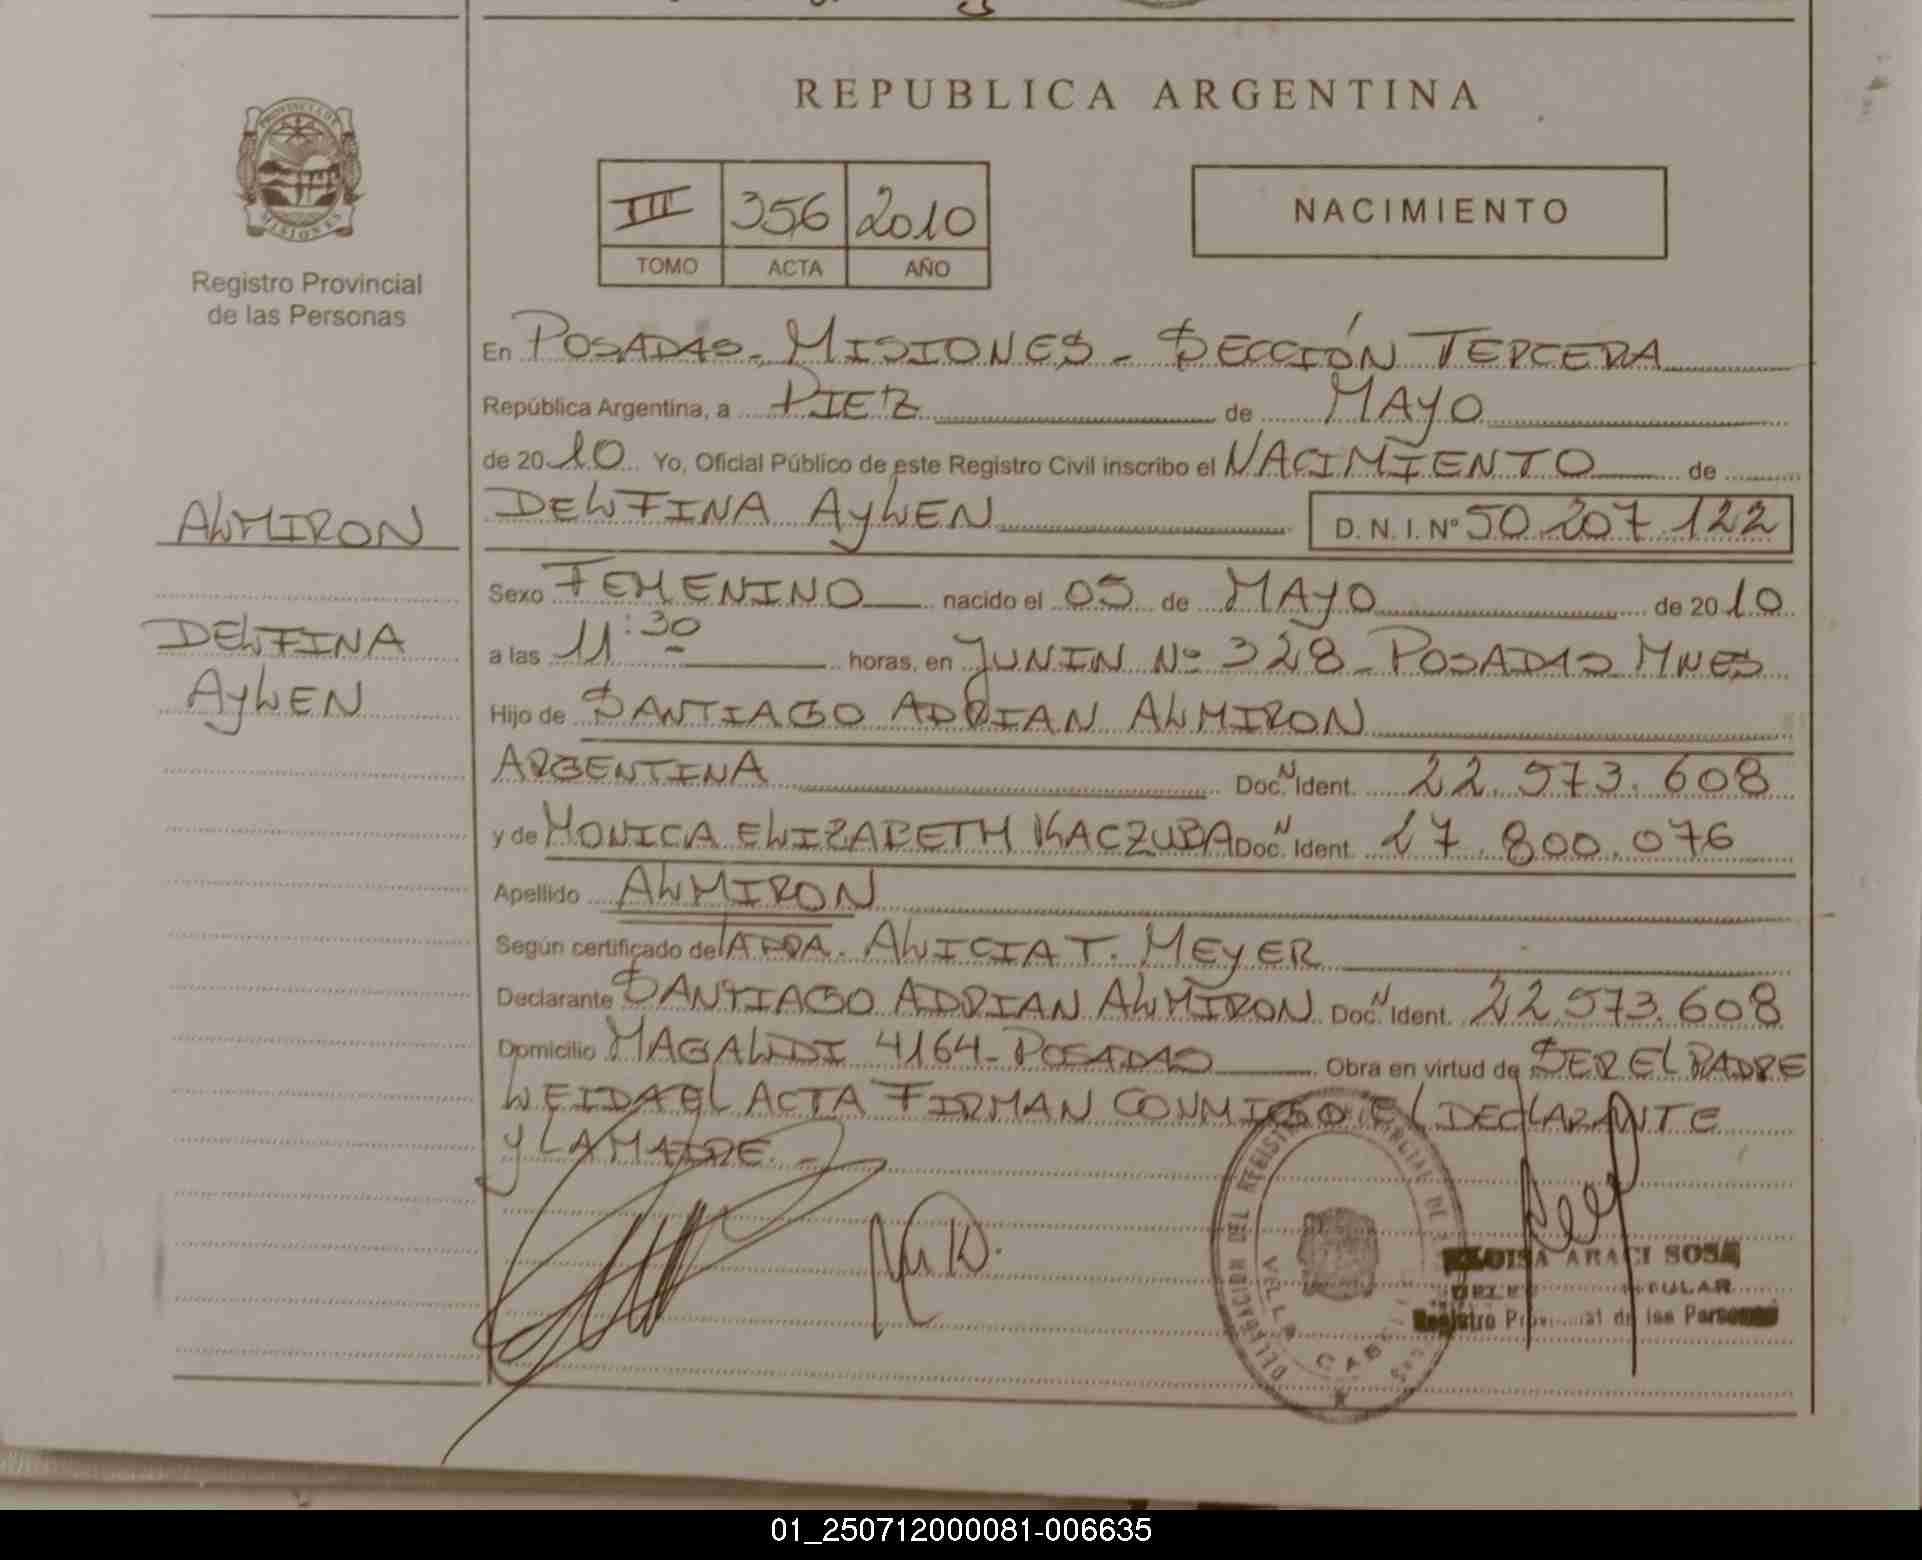 REPUBLICA ARGENTINA
PROVINCIA DE MISIONES
Registro Provincial
de las Personas
III 356 2010
TOMO ACTA AÑO
NACIMIENTO
En POSADAS - MISIONES - SECCIÓN TERCERA
República Argentina, a DIEZ de MAYO
de 2010 Yo, Oficial Público de este Registro Civil inscribo el NACIMIENTO de
ALMIRON
DELFINA AYLEN D. N. I. Nº 50.207.122
Sexo FEMENINO nacido el 05 de MAYO de 2010
DELFINA
AYLEN
a las 11:30 horas, en JUNIN Nº 328 - POSADAS MNES
Hijo de SANTIAGO ADRIAN ALMIRON
ARGENTINA Doc. N Ident. 22.573.608
y de MONICA ELIZABETH KACZUBA Doc. N Ident. 17.800.076
Apellido ALMIRON
Según certificado de LA FDA. ALICIA T. MEYER
Declarante SANTIAGO ADRIAN ALMIRON Doc. N Ident. 22.573.608
Domicilio MAGALDI 4164 - POSADAS Obra en virtud de SER EL PADRE
LEIDA EL ACTA FIRMAN CONMIGO EL DECLARANTE
Y LA MADRE.-
DELEGACION DEL REGISTRO PROVINCIAL DE
VILLA CABELLO
ELOISA ARACI SOSA
TITULAR
Registro Provincial de las Personas
01_250712000081-006635